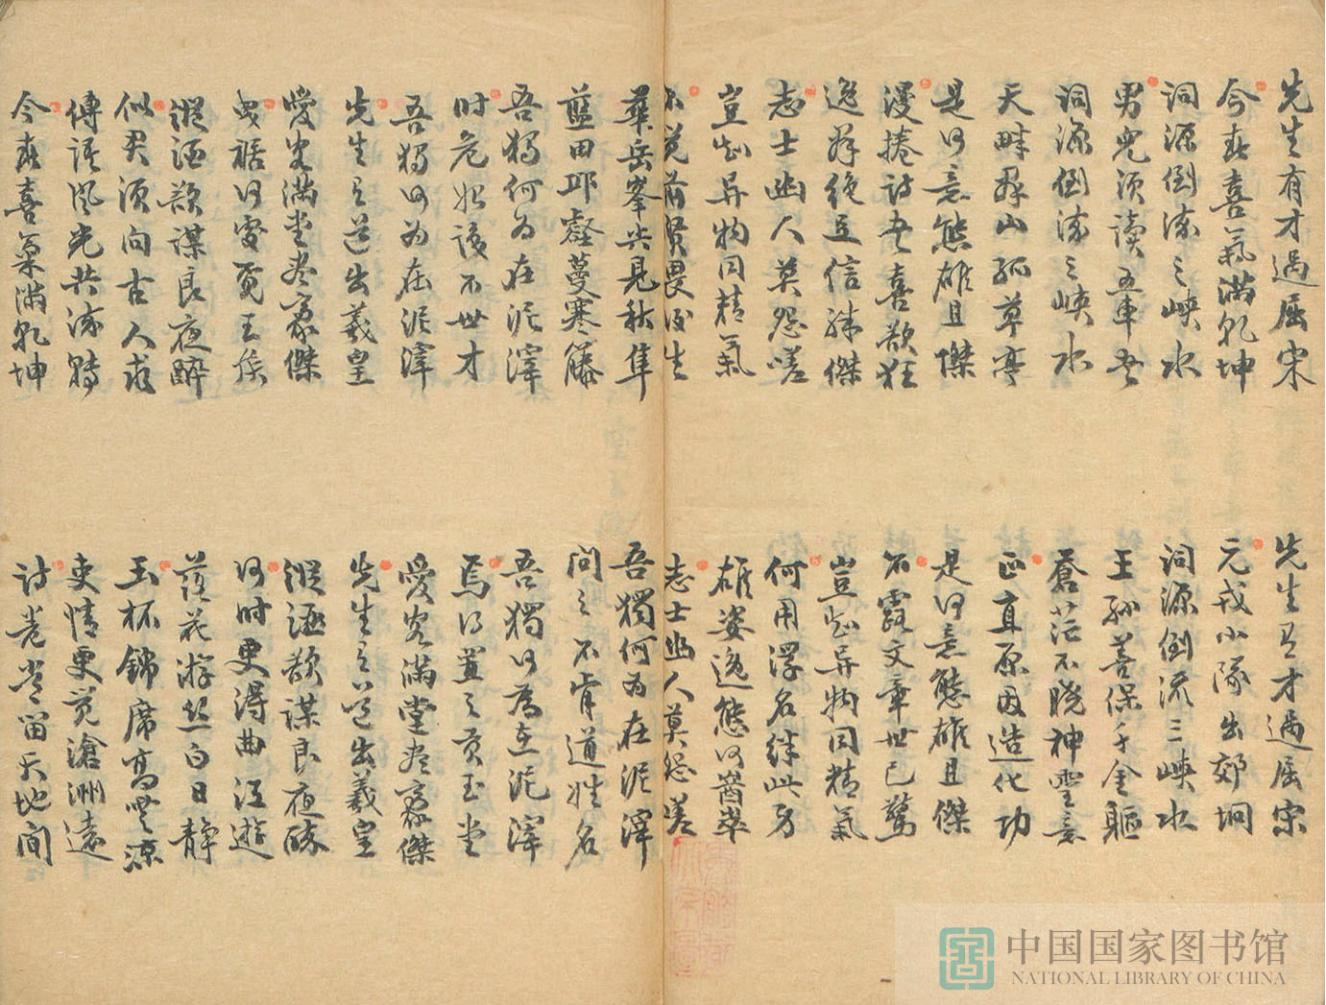 先生有才過屈宋
今春喜氣滿乾坤
詞源倒流三峽水
男兒須讀五車書
詞源倒流三峽水
天畔群山孤草亭
是何意態雄且傑
漫捲詩書喜欲狂
逸群絕足信殊傑
志士幽人莫怨嗟
豈知異物同精氣
不覺前賢畏後生
華岳峯尖見秋隼
藍田邱壑蔓寒籐
吾獨何為在泥滓
時危始識不世才
吾獨何為在泥滓
先生之道出羲皇
愛客滿堂盡豪傑
曳裾何處覓王侯
縱酒欲謀良夜醉
似君須向古人求
傳語風光共流轉
今春喜氣滿乾坤
先生有才過屈宋
元戎小隊出郊坰
詞源倒流三峽水
王孫善保千金軀
蒼茫不曉神靈意
正直原因造化功
是何意態雄且傑
不露文章世已驚
豈知異物同精氣
何用浮名絆此身
雄姿逸態何崷崒
志士幽人莫怨嗟
吾獨何為在泥滓
問之不肯道姓名
吾獨何為在泥滓
焉得置之貢玉堂
愛客滿堂盡豪傑
先生之道出羲皇
縱酒欲謀良夜醉
何時更得曲江遊
落花游絲白日靜
玉杯錦席高雲涼
吏情更覺滄洲遠
詩卷長留天地間
中国国家图书馆
NATIONAL LIBRARY OF CHINA